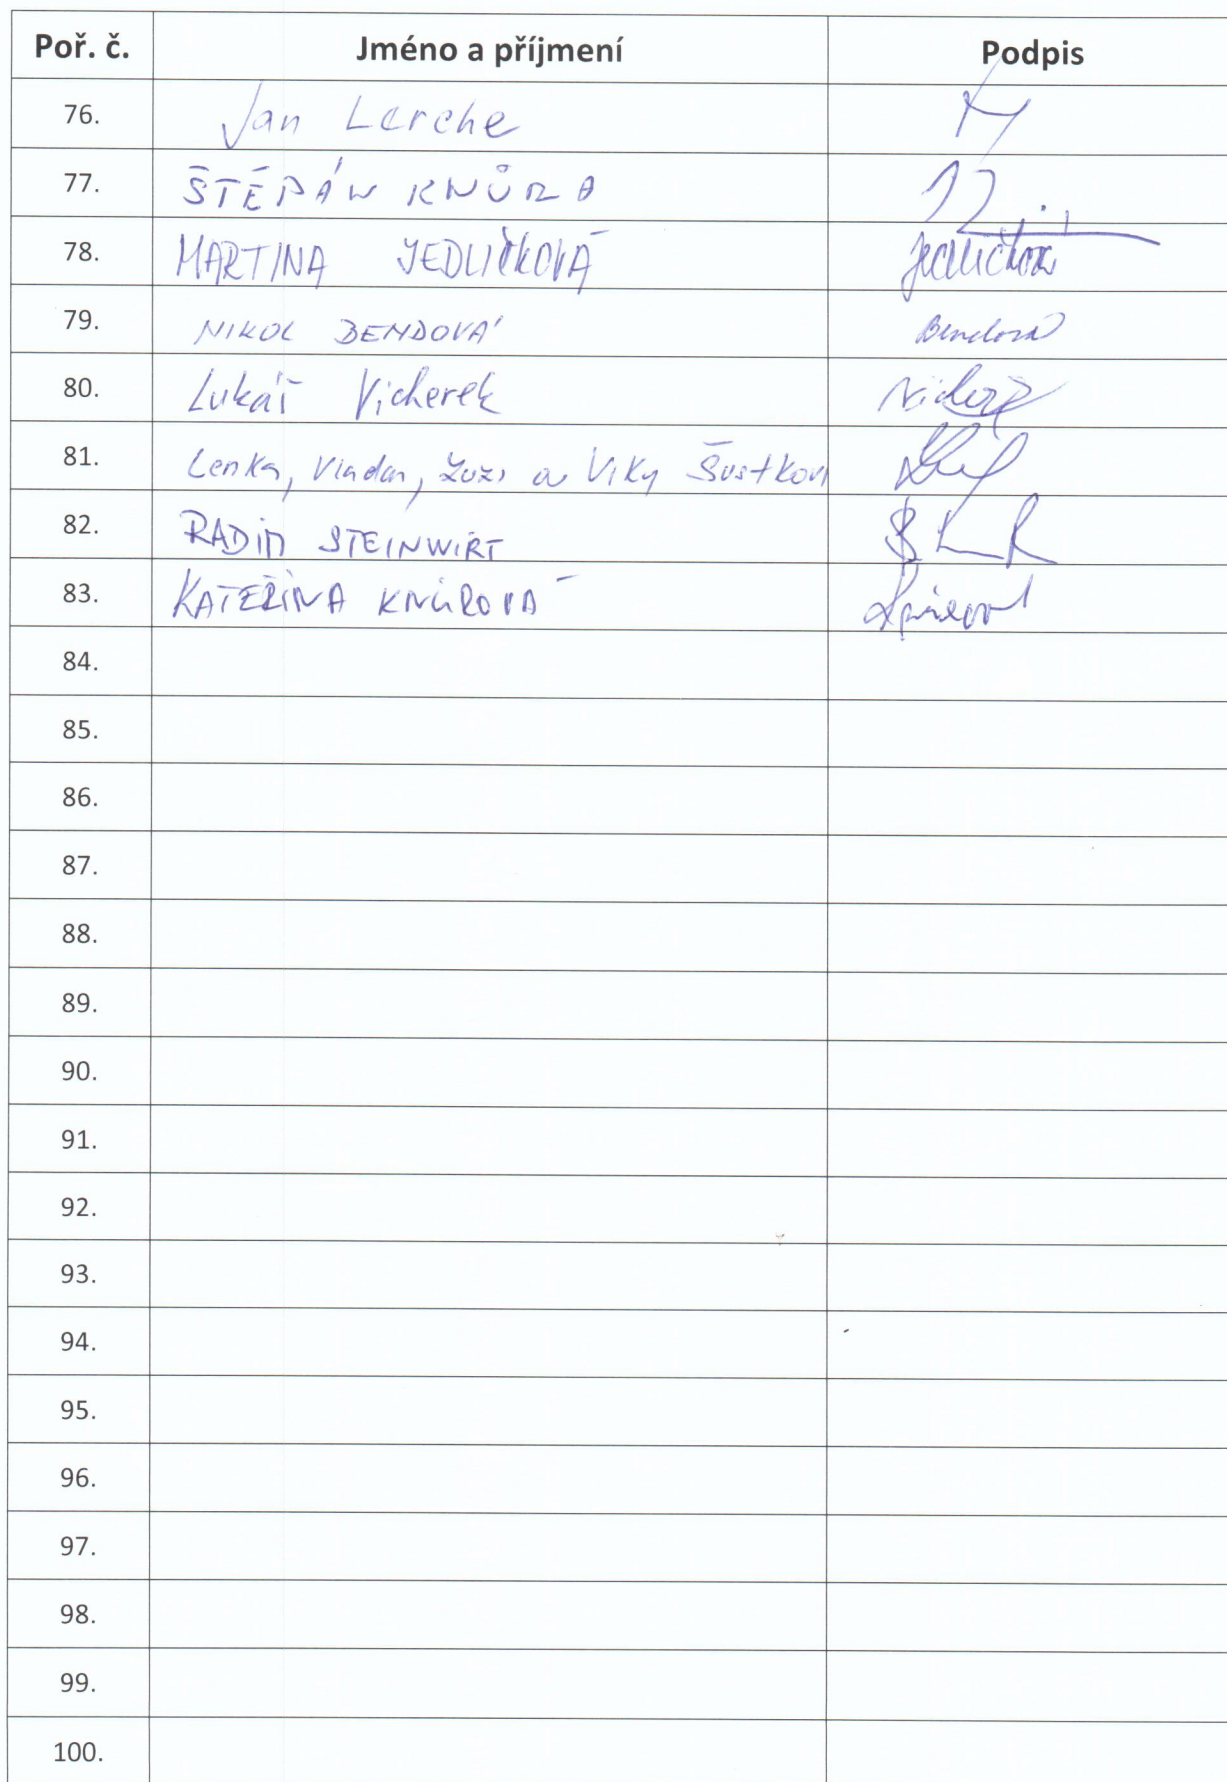 Poř. č. Jméno a příjmení Podpis
76. Jan Lerche
77. ŠTĚPÁN KNŮRA
78. MARTINA JEDLIČKOVÁ
79. NIKOL BENDOVÁ Bendová
80. Lukáš Vicherek
81. Lenka, Vladan, Zuzi a Viky Šustkovi
82. RADIM STEINWIRT
83. KATEŘINA KNŮROVÁ
84.
85.
86.
87.
88.
89.
90.
91.
92.
93.
94.
95.
96.
97.
98.
99.
100.